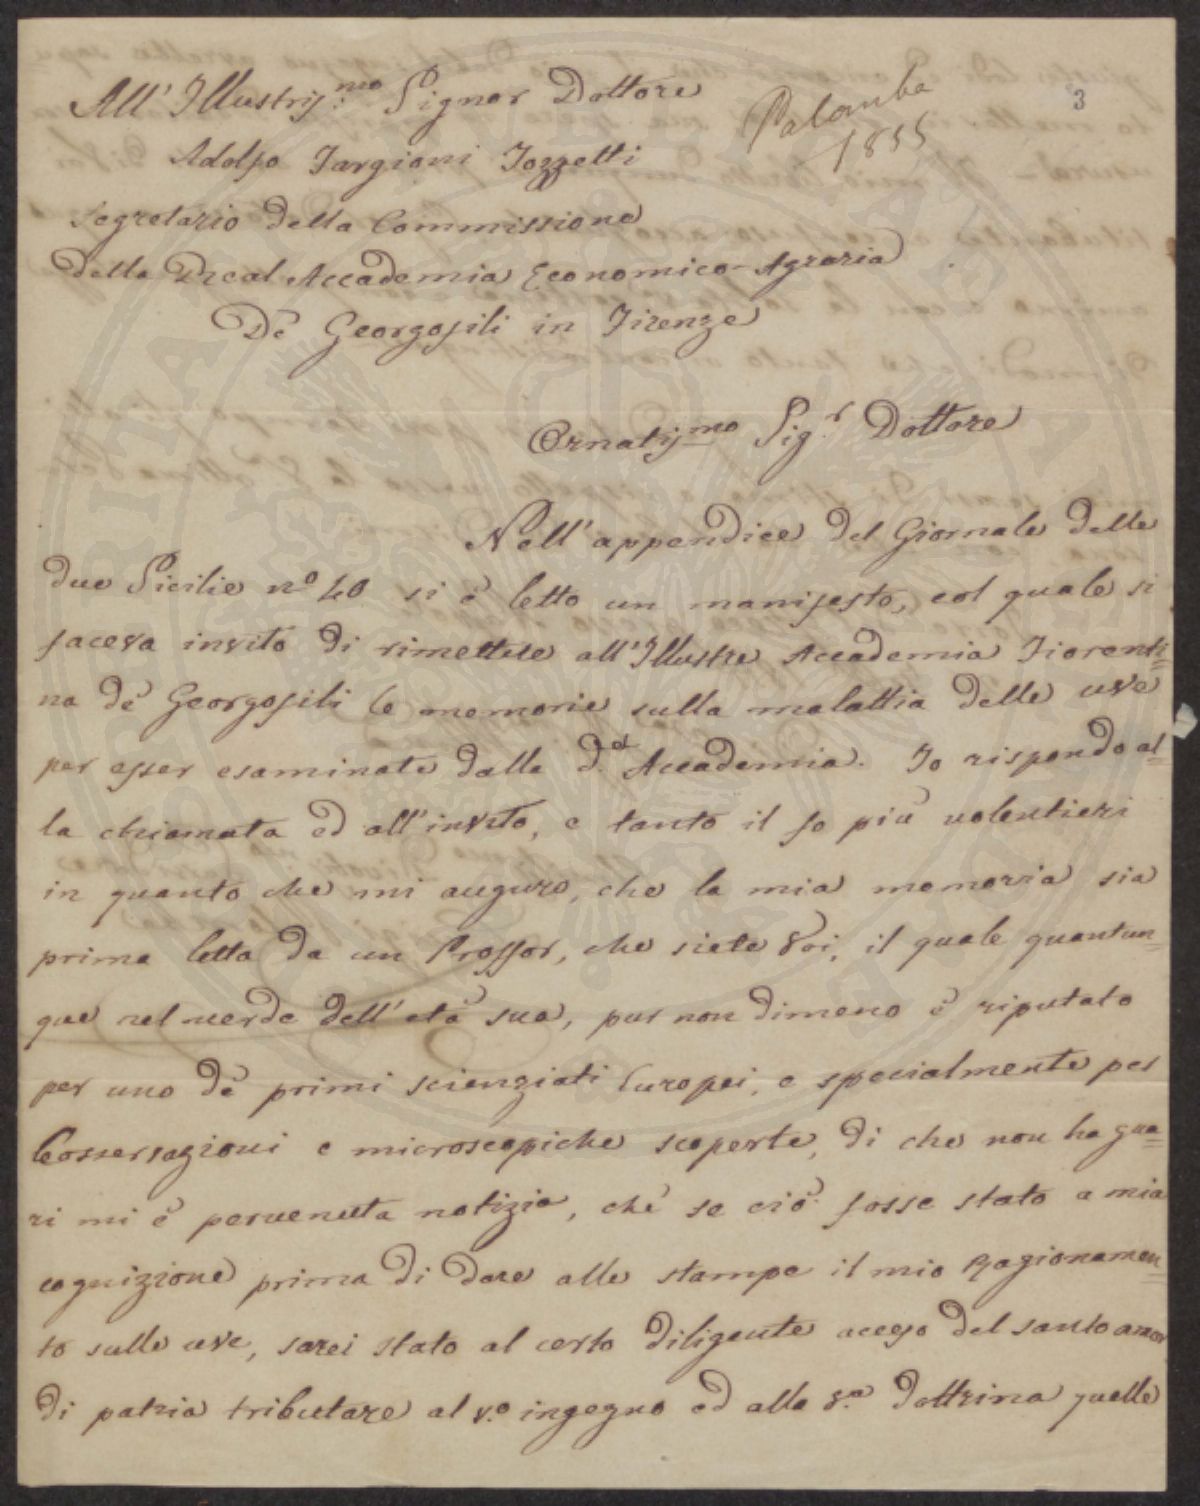 All' Illustris.mo Signor Dottore
Palomba
1855
3
Adolfo Targioni Tozzetti
Segretario della Commissione
della Real Accademia Economico-Agraria
De' Georgofili in Firenze
Ornatis.mo Sig.r Dottore
Nell'appendice del Giornale delle
due Sicilie n.o 40 si è letto un manifesto, col quale si
faceva invito di rimettere all'Illustre Accademia Fiorenti=
na de' Georgofili le memorie sulla malattia delle uve
per esser esaminate dalla d.a Accademia. Io rispondo al=
la chiamata ed all'invito, e tanto il fo più volentieri
in quanto che mi auguro, che la mia memoria sia
prima letta da un Proffor, che siete Voi, il quale quantun=
que nel verde dell'età sua, pur non dimeno è riputato
per uno de' primi scienziati Europei, e specialmente per
l'osservazioni e microscopiche scoperte, di che non ha gua=
ri mi è pervenuta notizia, chè se ciò fosse stato a mia
cognizione prima di dare alle stampe il mio Ragionamen=
to sulle uve, sarei stato al certo diligente acceso del santo amor
di patria tributare al v.o ingegno ed alla v.a dottrina quelle